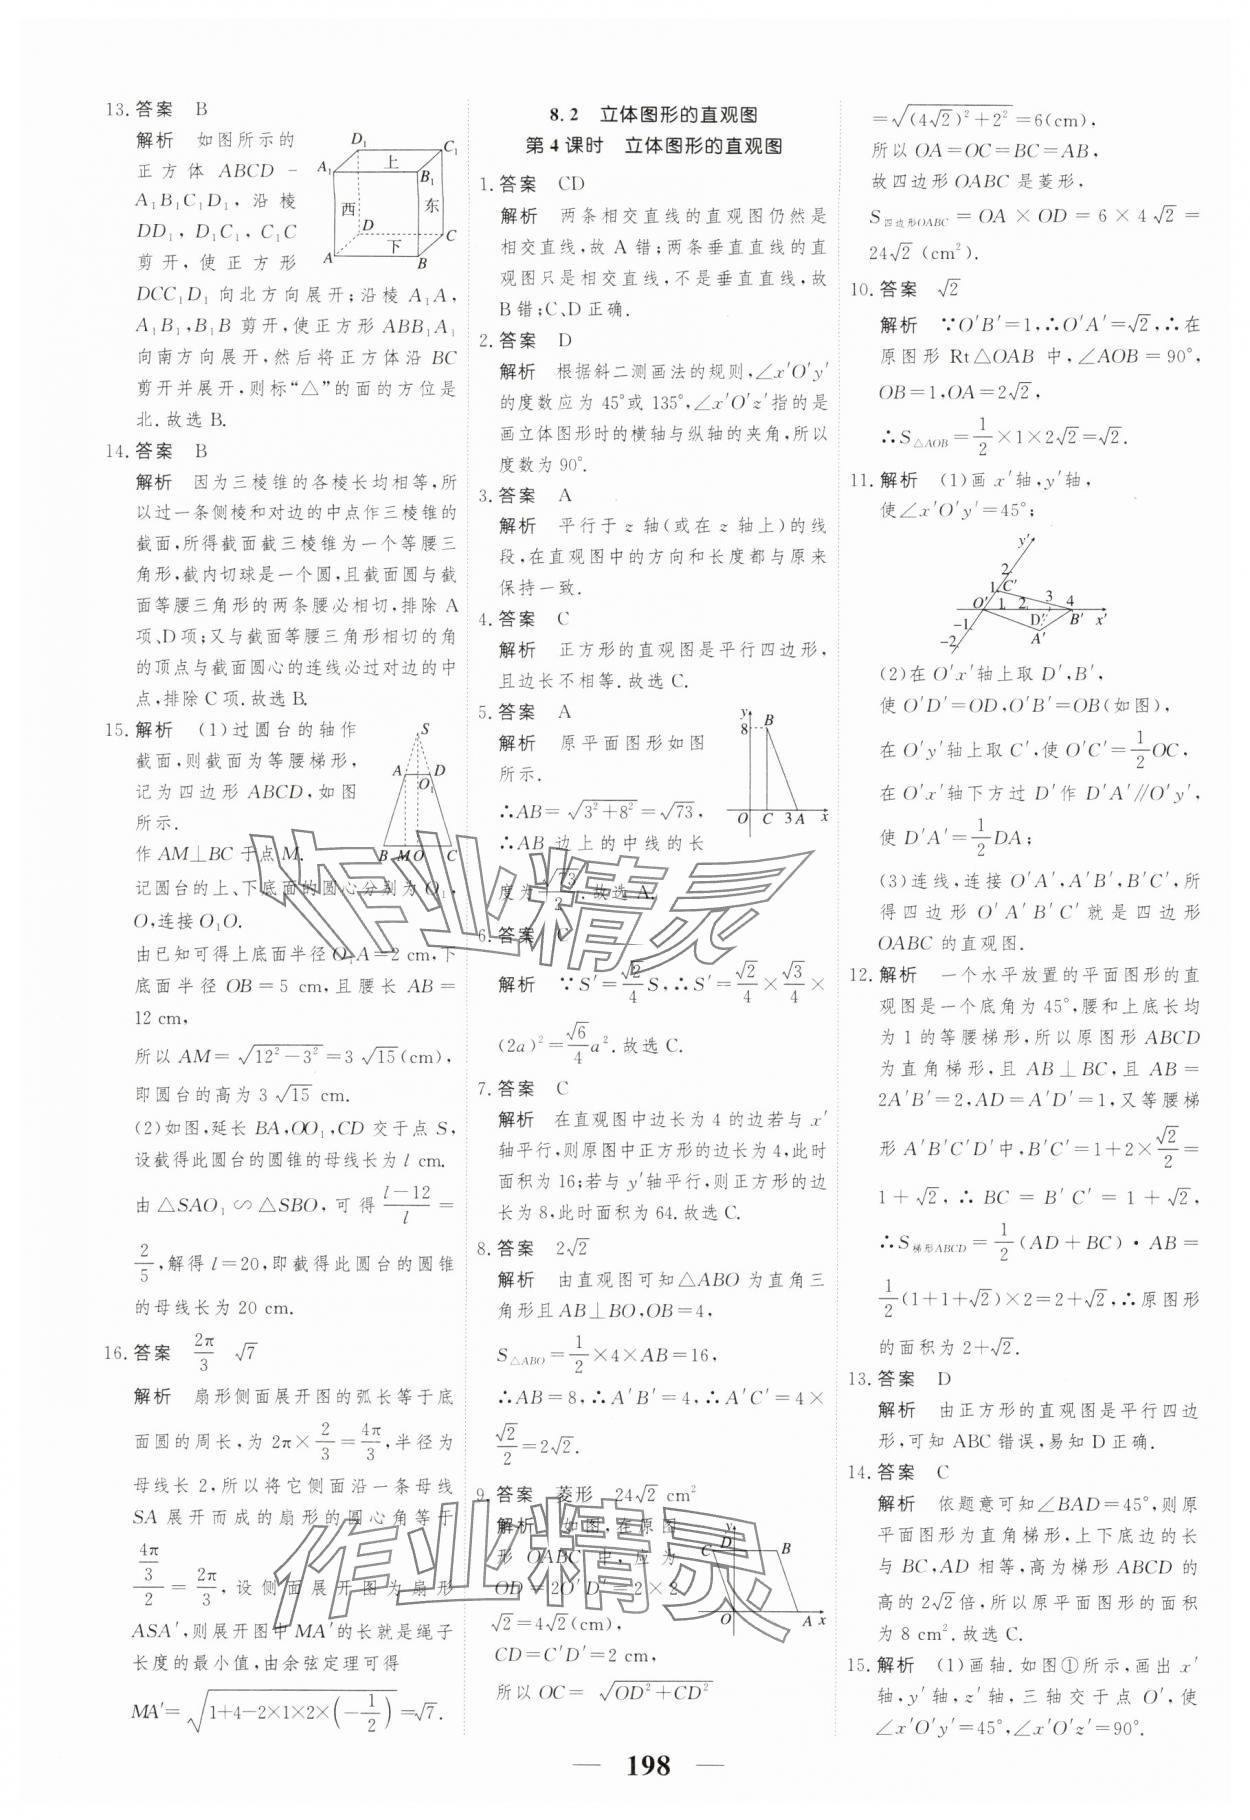 13. 答案 B
解析 如图所示的
正方体 ABCD-
A₁B₁C₁D₁,沿棱
DD₁,D₁C₁,C₁C
剪开,使正方形
DCC₁D₁向北方向展开;沿棱 A₁A,
A₁B₁,B₁B 剪开,使正方形 ABB₁A₁
向南方向展开,然后将正方体沿 BC
剪开并展开,则标“△”的面的方位是
北.故选 B.
D₁ C₁ A₁ 上 B₁ 西 东 D C 下 A B
14. 答案 B
解析 因为三棱锥的各棱长均相等,所
以过一条侧棱和对边的中点作三棱锥的
截面,所得截面截三棱锥为一个等腰三
角形,截内切球是一个圆,且截面圆与截
面等腰三角形的两条腰必相切,排除 A
项、D项;又与截面等腰三角形相切的角
的顶点与截面圆心的连线必过对边的中
点,排除 C 项.故选 B.
15. 解析 (1)过圆台的轴作
截面,则截面为等腰梯形,
记为四边形 ABCD,如图
所示.
作 AM⊥BC 于点 M.
S A D O₁ B M O C
记圆台的上、下底面的圆心分别为 O₁,
O,连接 O₁O.
由已知可得上底面半径 O₁A=2 cm,下
底面半径 OB=5 cm,且腰长 AB=
12 cm,
所以 AM=√(12²-3²)=3√15(cm),
即圆台的高为 3√15 cm.
(2)如图,延长 BA,OO₁,CD 交于点 S,
设截得此圆台的圆锥的母线长为 l cm.
由△SAO₁∽△SBO,可得 (l-12)/l=
2/5,解得 l=20,即截得此圆台的圆锥
的母线长为 20 cm.
16. 答案 2π/3 √7
解析 扇形侧面展开图的弧长等于底
面圆的周长,为 2π×2/3=4π/3,半径为
母线长 2,所以将它侧面沿一条母线
SA 展开而成的扇形的圆心角等于
(4π/3)/2=2π/3,设侧面展开图为扇形
ASA′,则展开图中 MA′的长度就是绳子
长度的最小值,由余弦定理可得
MA′=√(1+4-2×1×2×(-1/2))=√7.
8.2 立体图形的直观图
第 4 课时 立体图形的直观图
1. 答案 CD
解析 两条相交直线的直观图仍然是
相交直线,故 A 错;两条垂直直线的直
观图只是相交直线,不是垂直直线,故
B 错;C、D 正确.
2. 答案 D
解析 根据斜二测画法的规则,∠x′O′y′
的度数应为 45°或 135°,∠x′O′z′指的是
画立体图形时的横轴与纵轴的夹角,所以
度数为 90°.
3. 答案 A
解析 平行于 z 轴(或在 z 轴上)的线
段,在直观图中的方向和长度都与原来
保持一致.
4. 答案 C
解析 正方形的直观图是平行四边形,
且边长不相等.故选 C.
5. 答案 A
解析 原平面图形如图
所示.
∴AB=√(3²+8²)=√73,
∴AB 边上的中线的长
度为 √73/2.故选 A.
y 8 B O C 3 A x
6. 答案 C
解析 ∵S′=√2/4 S,∴S′=√2/4×√3/4×
(2a)²=√6/4 a².故选 C.
7. 答案 C
解析 在直观图中边长为 4 的边若与 x′
轴平行,则原图中正方形的边长为 4,此时
面积为 16;若与 y′轴平行,则正方形的边
长为 8,此时面积为 64.故选 C.
8. 答案 2√2
解析 由直观图可知△ABO 为直角三
角形且 AB⊥BO,OB=4,
S△ABO=1/2×4×AB=16,
∴AB=8,∴A′B′=4,∴A′C′=4×
√2/2=2√2.
9. 答案 菱形 24√2 cm²
解析 如图,在原图
形 OABC 中,应为
OD=2O′D′=2×2
√2=4√2(cm),
CD=C′D′=2(cm),
所以 OC=√(OD²+CD²)
y C D B O A x
=√((4√2)²+2²)=6(cm),
所以 OA=OC=BC=AB,
故四边形 OABC 是菱形,
S四边形OABC=OA×OD=6×4√2=
24√2(cm²).
10. 答案 √2
解析 ∵O′B′=1,∴O′A′=√2,∴在
原图形 Rt△OAB 中,∠AOB=90°,
OB=1,OA=2√2,
∴S△AOB=1/2×1×2√2=√2.
11. 解析 (1)画 x′轴,y′轴,
使∠x′O′y′=45°;
y′ 2 1 C′ O′ 1 2 3 4 D′ B′ x′ -1 A′ -2
(2)在 O′x′轴上取 D′,B′,
使 O′D′=OD,O′B′=OB(如图),
在 O′y′轴上取 C′,使 O′C′=1/2 OC,
在 O′x′轴下方过 D′作 D′A′∥O′y′,
使 D′A′=1/2 DA;
(3)连线,连接 O′A′,A′B′,B′C′,所
得四边形 O′A′B′C′就是四边形
OABC 的直观图.
12. 解析 一个水平放置的平面图形的直
观图是一个底角为 45°,腰和上底长均
为 1 的等腰梯形,所以原图形 ABCD
为直角梯形,且 AB⊥BC,且 AB=
2A′B′=2,AD=A′D′=1,又等腰梯
形 A′B′C′D′中,B′C′=1+2×√2/2=
1+√2,∴BC=B′C′=1+√2,
∴S梯形ABCD=1/2(AD+BC)·AB=
1/2(1+1+√2)×2=2+√2,∴原图形
的面积为 2+√2.
13. 答案 D
解析 由正方形的直观图是平行四边
形,可知 ABC 错误,易知 D 正确.
14. 答案 C
解析 依题意可知∠BAD=45°,则原
平面图形为直角梯形,上下底边的长
与 BC,AD 相等,高为梯形 ABCD 的
高的 2√2倍,所以原平面图形的面积
为 8 cm².故选 C.
15. 解析 (1)画轴.如图①所示,画出 x′
轴,y′轴,z′轴,三轴交于点 O′,使
∠x′O′y′=45°,∠x′O′z′=90°.
作业精灵
作业精灵
— 198 —